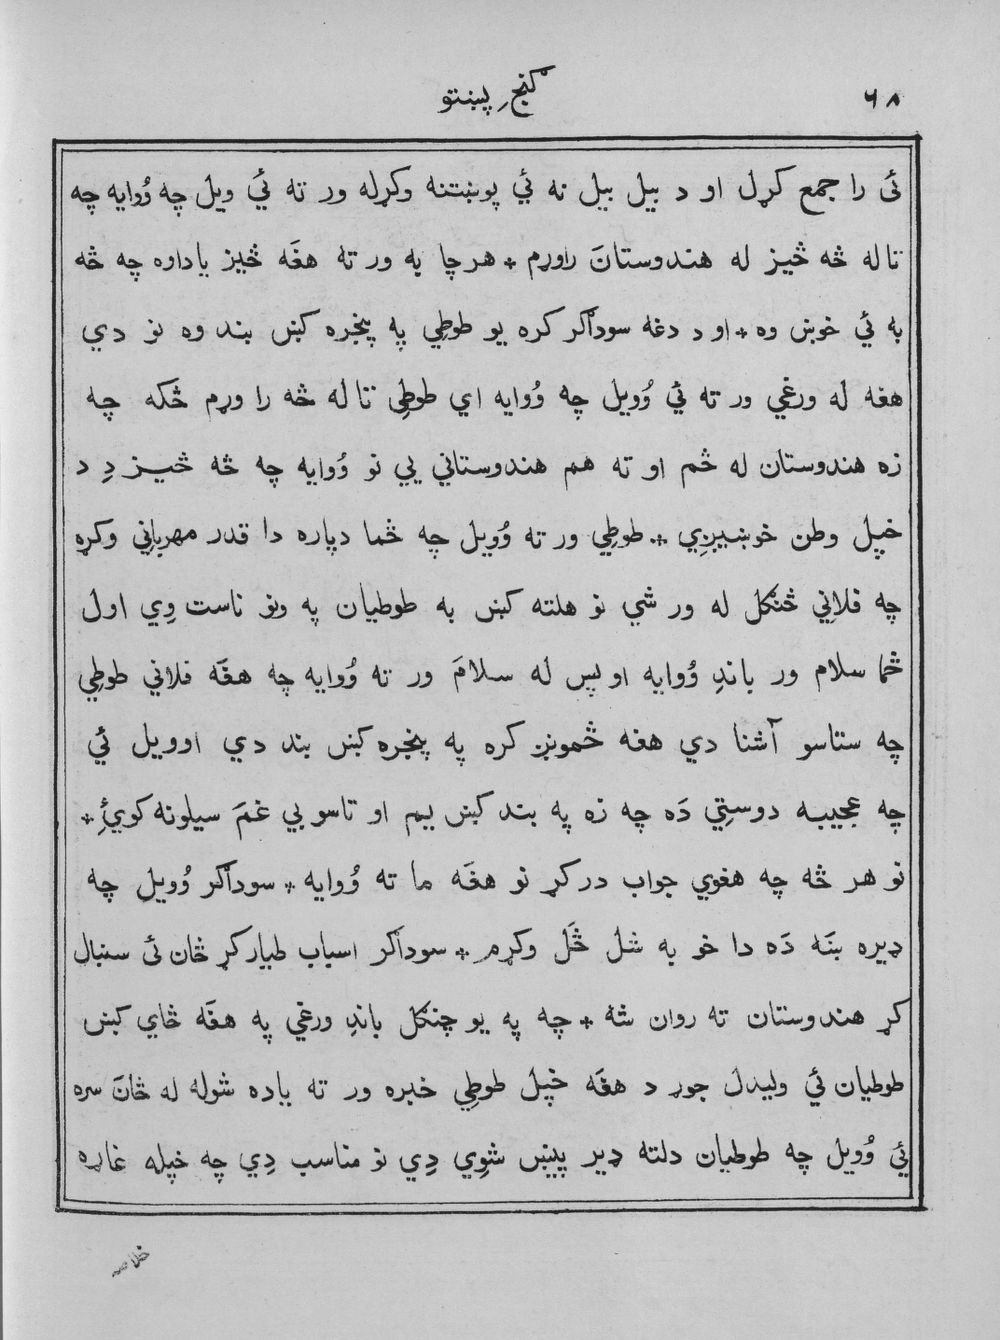 ۶۸
گنجِ پښتو
ئ را جمع کړل او د بيل بيل نه ئي پوښتنه وکړله ور ته ئي ويل چه وُوايه چه
تا له څه څيز له هندوستانَ راوړم * هر چا په ور ته هغَه څيز ياداوه چه څه
به ئي خوښ وه * او د دغه سوداګر کره يو طوطِي په پنجره کښ بند وه نو دي
هغه له ورغي ور ته ئي وُويل چه وُوايه اي طوطِی تا له څه را وړم ځکه چه
زه هندوستان له ځم او ته هم هندوستاني يي نو وُوايه چه څه څيز دِ د
خپل وطن خوښيږي * طوطِي ور ته وُويل چه ځما دپاره دا قدر مهربانِي وکړه
چه فلانِي ځنګل له ور شي نو هلته کښ به طوطيان په ونو ناست وِي اول
ځما سلام ور باندِ وُوايه او پس له سلامَ ور ته وُوايه چه هغَه فلاني طوطِي
چه ستاسو آشنا دي هغه ځمونږ کره په پنجره کښ بند دي او ويل ئي
چه عجيبه دوستِي دَه چه زه په بند کښ يم او تاسو بي غمَ سيلونه کوئِ *
نو هر څه چه هغوي جواب درکړ نو هغَه ما ته وُوايه * سوداګر وُويل چه
ډيره ښَه دَه دا خو به شل ځَل وکړم * سوداګر اسباب طيار کړ ځان ئ سنبال
کړ هندوستان ته روان شهٔ * چه په يو چنګل باندِ ورغي په هغَه ځاي کښ
طوطيان ئي وليدل جوړ د هغَه خپل طوطِي خبره ور ته ياده شوله له ځانَ سره
ئي وُويل چه طوطيان دلته ډير پيښ شوِي دِي نو مناسب دِي چه خپله غاړه
خلاصه